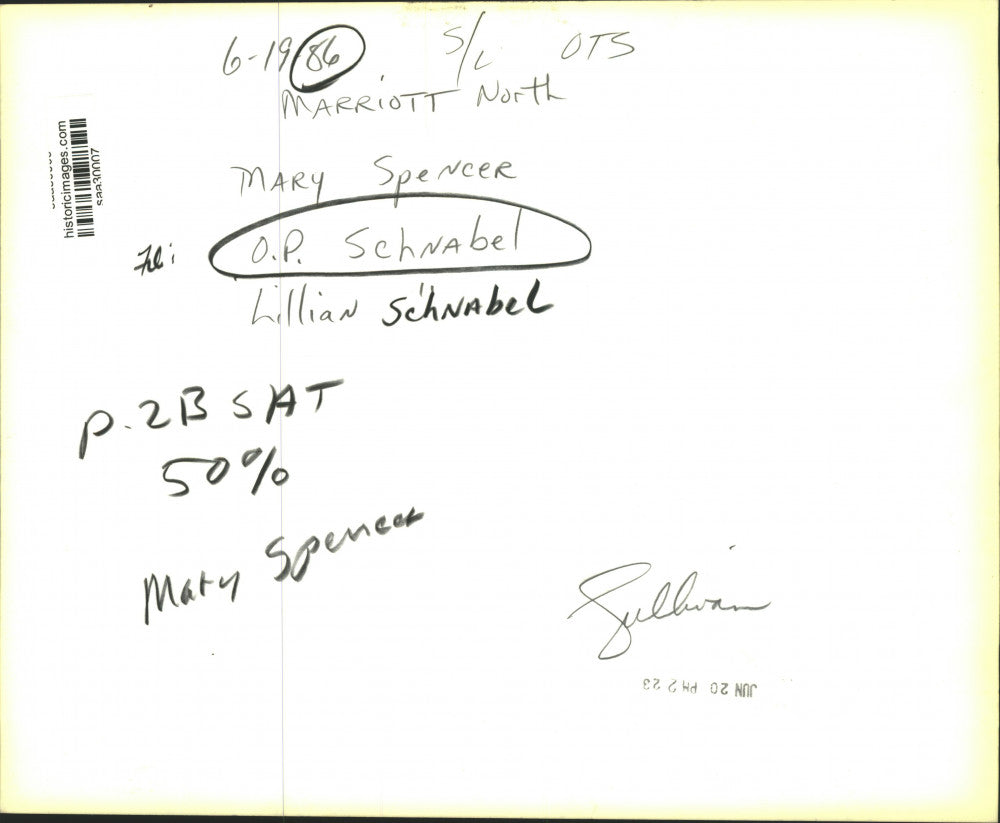 6-19-86 S/L OTS
MARRIOTT North
MARY SpeNCER
O.P. SchNAbel
Lillian SchNAbel
P. 2B SAT
50%
Mary Spencer
Sullivan
JUN 20 PM 2 23
historicimages.com
saa30007